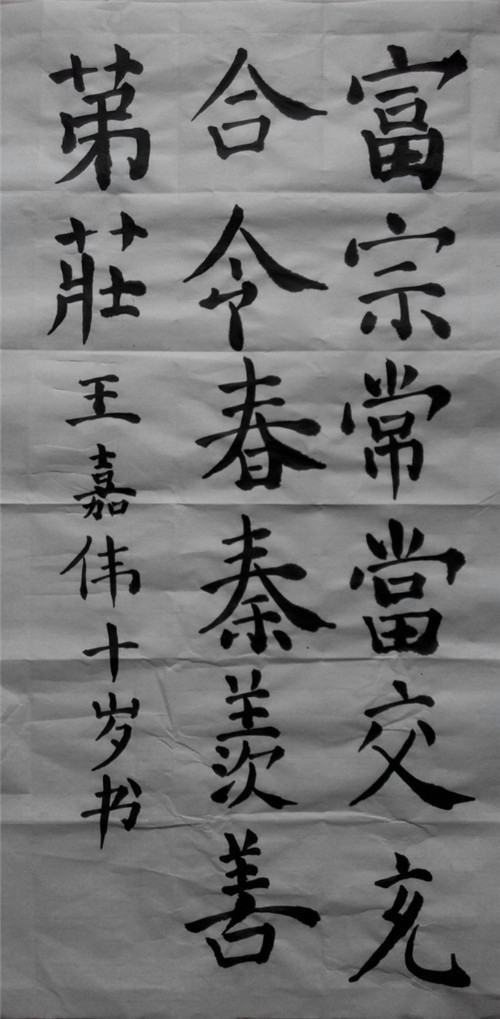 富宗常當交充
合令春秦羨善
苐莊王嘉伟十岁书